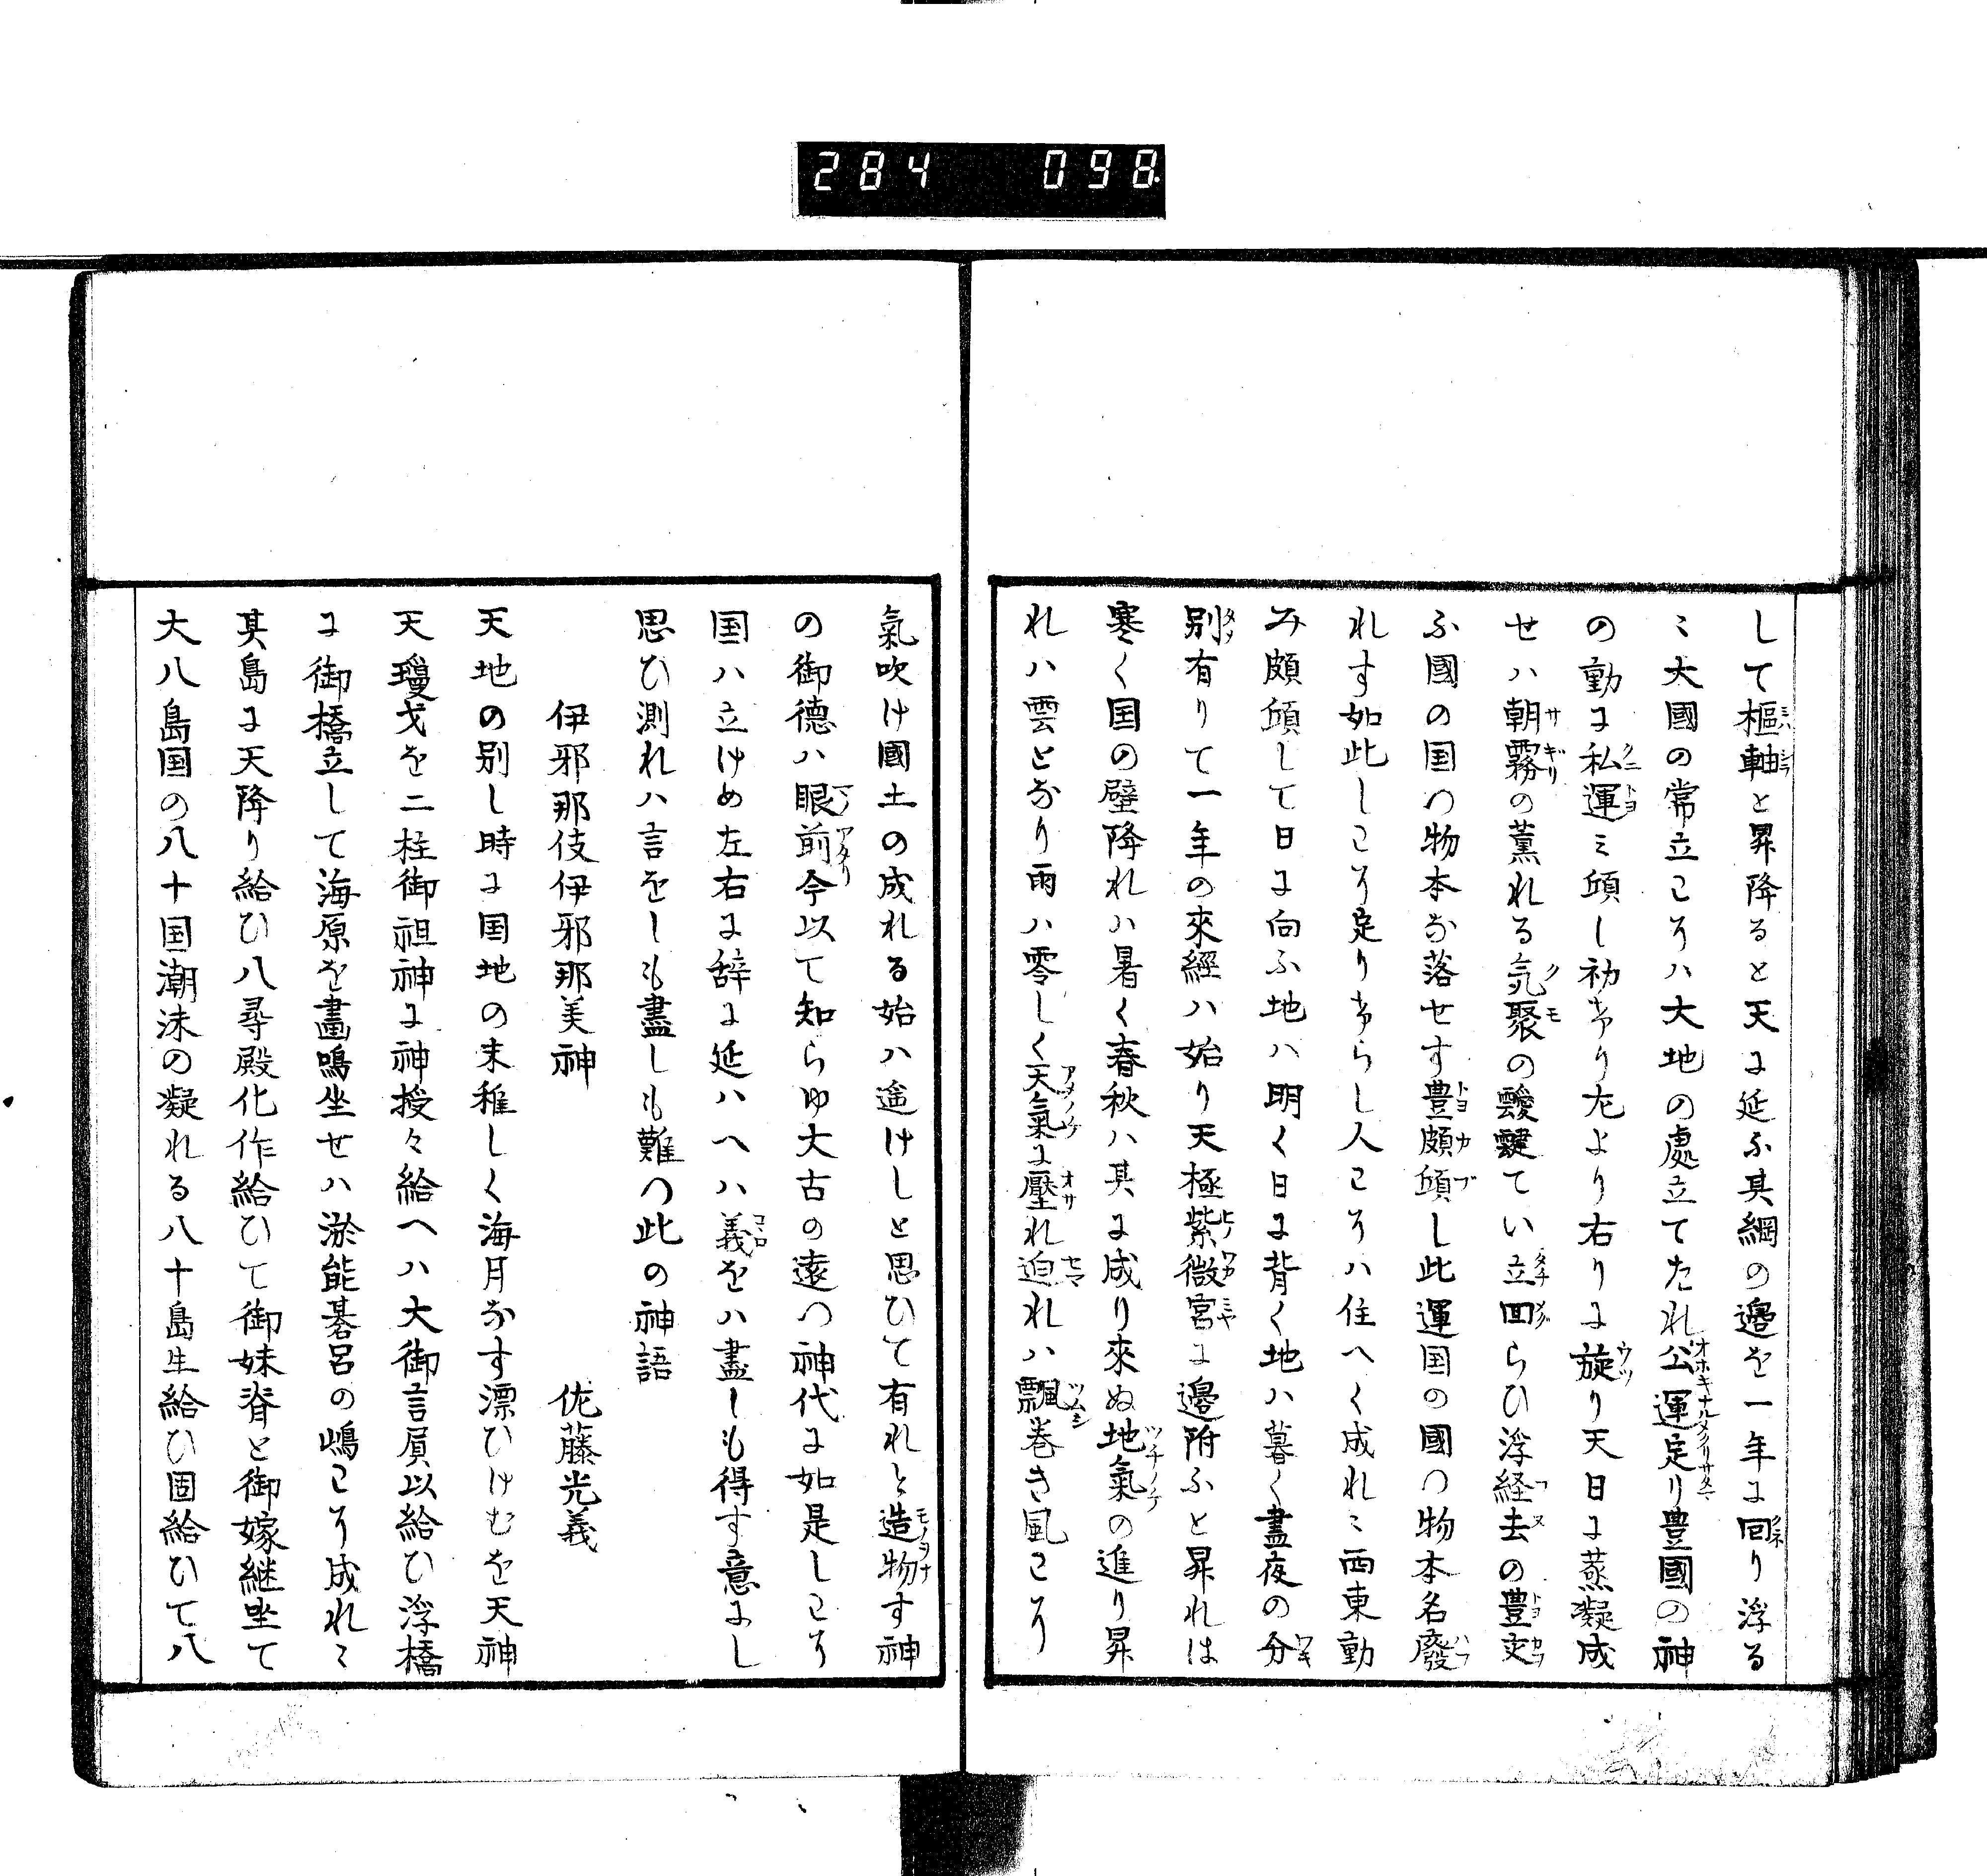 284 098
して樞軸と昇降ると天に延ふ其綱の邉を一年に回り浮る
ミ大國の常立こそハ大地の處立てたれ公運定り豊國の神
の動に私運ミ頎し初ᅟけり左より右りに旋り天日に蒸凝成
せハ朝霧の薫れる気聚の靉靆てい立回らひ浮経去の豊支
ふ國の国つ物本な落せす豊頗傾し此運国の國つ物本名廢
れす如此しこそ足りけらし人こそハ住へく成れミ西東動
み頗傾して日に向ふ地ハ明く日に背く地ハ暮く晝夜の分
別有りて一年の來經ハ始り天極紫微宮に邉附ふと昇れは
寒く国の壁降れハ暑く春秋ハ其に成り來ぬ地氣の進り昇
れハ雲となり雨ハ零しく天氣に壓れ迫れハ飄巻き風こそ
氣吹け國土の成れる始ハ遥けしと思ひて有れと造物す神
の御德ハ眼前今以て知らゆ大古の遠つ神代に如是しこそ
国ハ立けめ左右に辞に延ハヘハ義をハ盡しも得す意にし
思ひ測れハ言をしも盡しも難つ此の神語
伊邪那伎伊邪那美神　佐藤光義
天地の別し時に国地の末稚しく海月なす漂ひけむを天神
天瓊戈を二柱御祖神に神授々給へハ大御言屓以給ひ浮橋
に御橋立して海原を畫鳴坐せハ淤能碁呂の嶋こそ成れミ
其島に天降り給ひ八尋殿化作給ひて御妹脊と御嫁継坐て
大八島国の八十国潮沫の凝れる八十島生給ひ固給ひて八